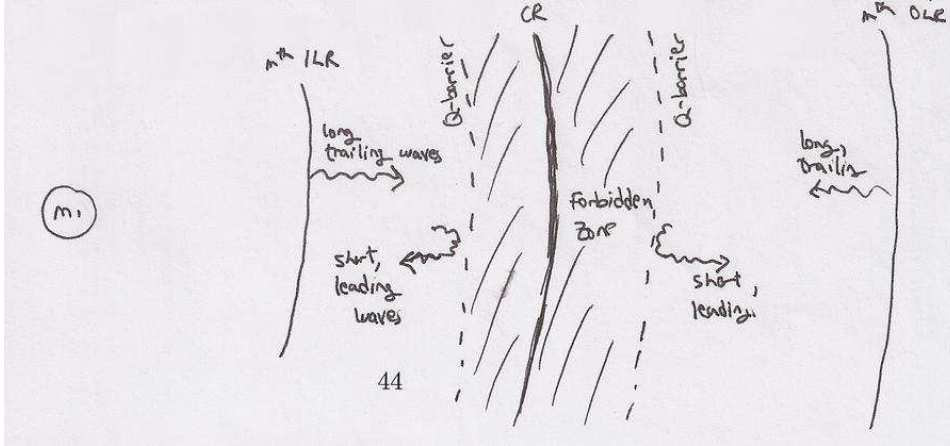 CR
mth OLR
mth ILR
Q-barrier
Q-barrier
long
trailing waves
long,
trailin
m1
Forbidden
Zone
short,
leading
waves
short,
leading.
44